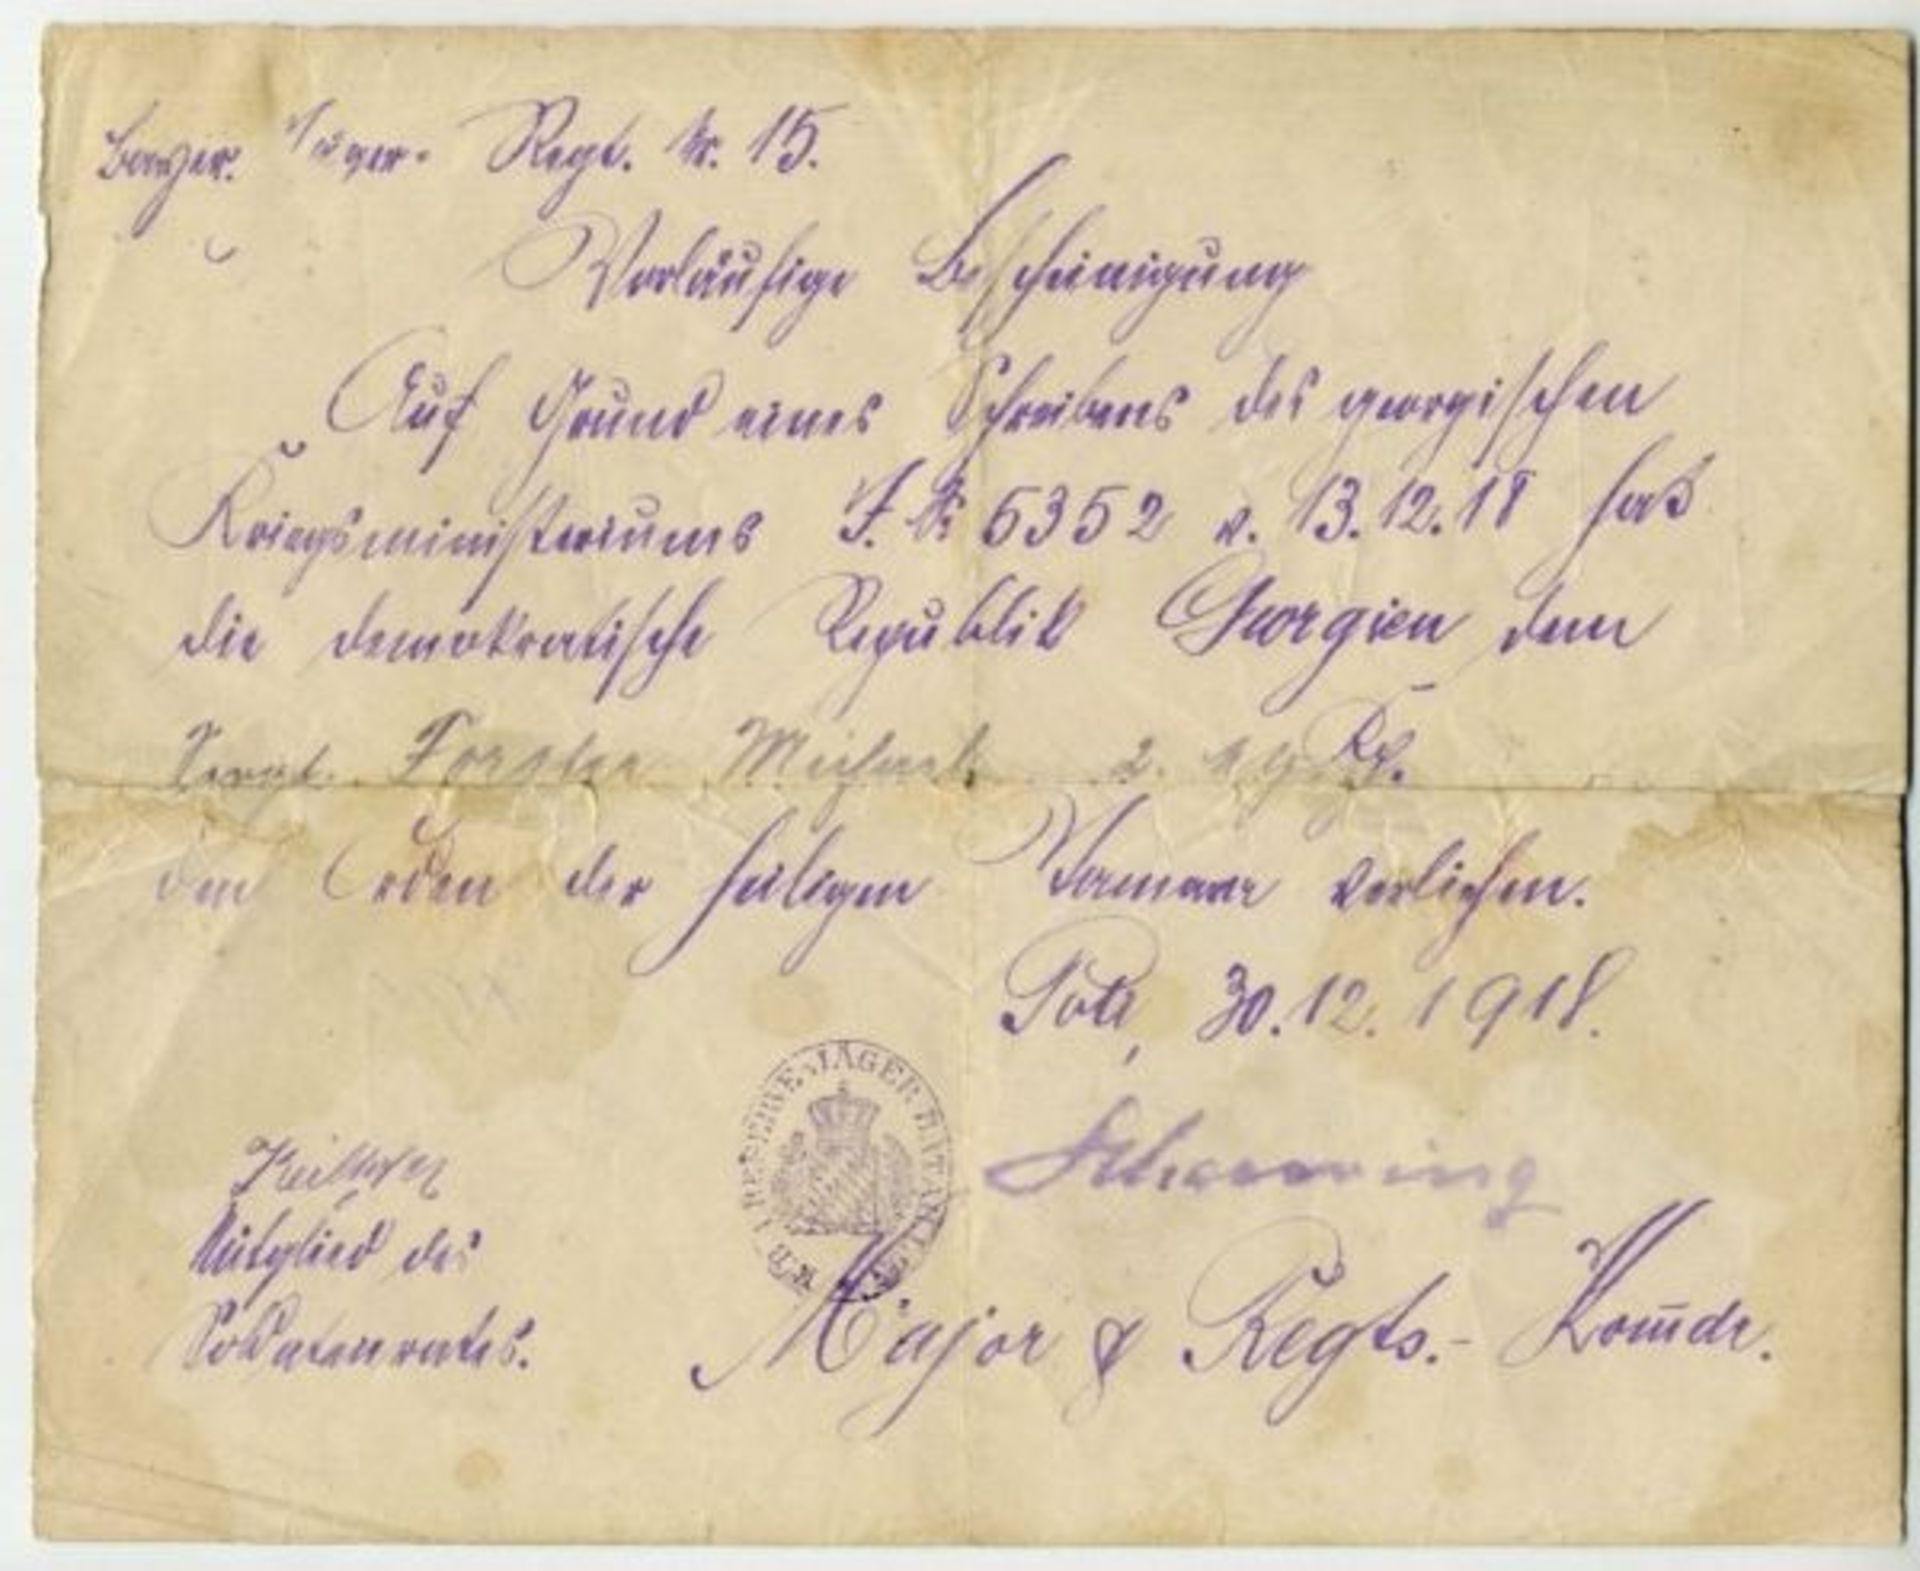 Bayer. Jäger-Regt. Nr. 15.
Vorläufige Bescheinigung
Auf Grund eines Schreibens des georgischen
Kriegsministeriums J. Nr 5352 v. 13.12.18 hat
die demokratische Republik Georgien dem
Sergt. Forster Michael 2.
den Orden der heiligen Tamara verliehen.
Poti, 30.12.1918.
1 RESERVE-JÄGER-BATAILLON
K.B.
Mitglied des
Soldatenrates.
Major & Regts.- Komdr.